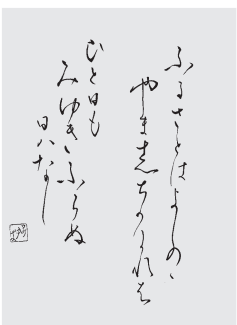 ふるさとはよしのゝ
やま志ちかけれは
ひと日も
みゆきふらぬ
日ハなし